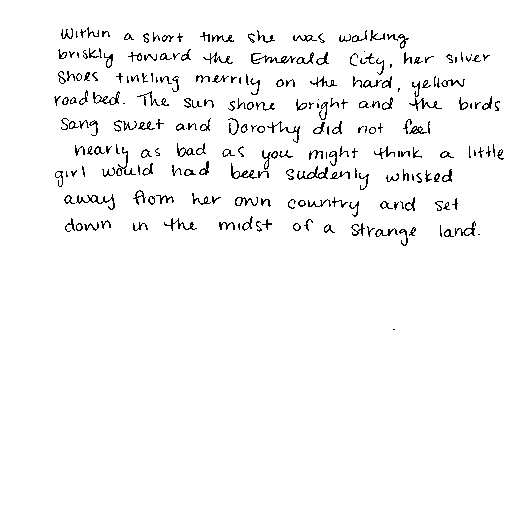 Within a short time she was walking
briskly toward the Emerald City, her silver
Shoes tinkling merrily on the hard, yellow
roadbed. The sun shone bright and the birds
Sang sweet and Dorothy did not feel
nearly as bad as you might think a little
girl would had been suddenly whisked
away from her own country and set
down in the midst of a strange land.